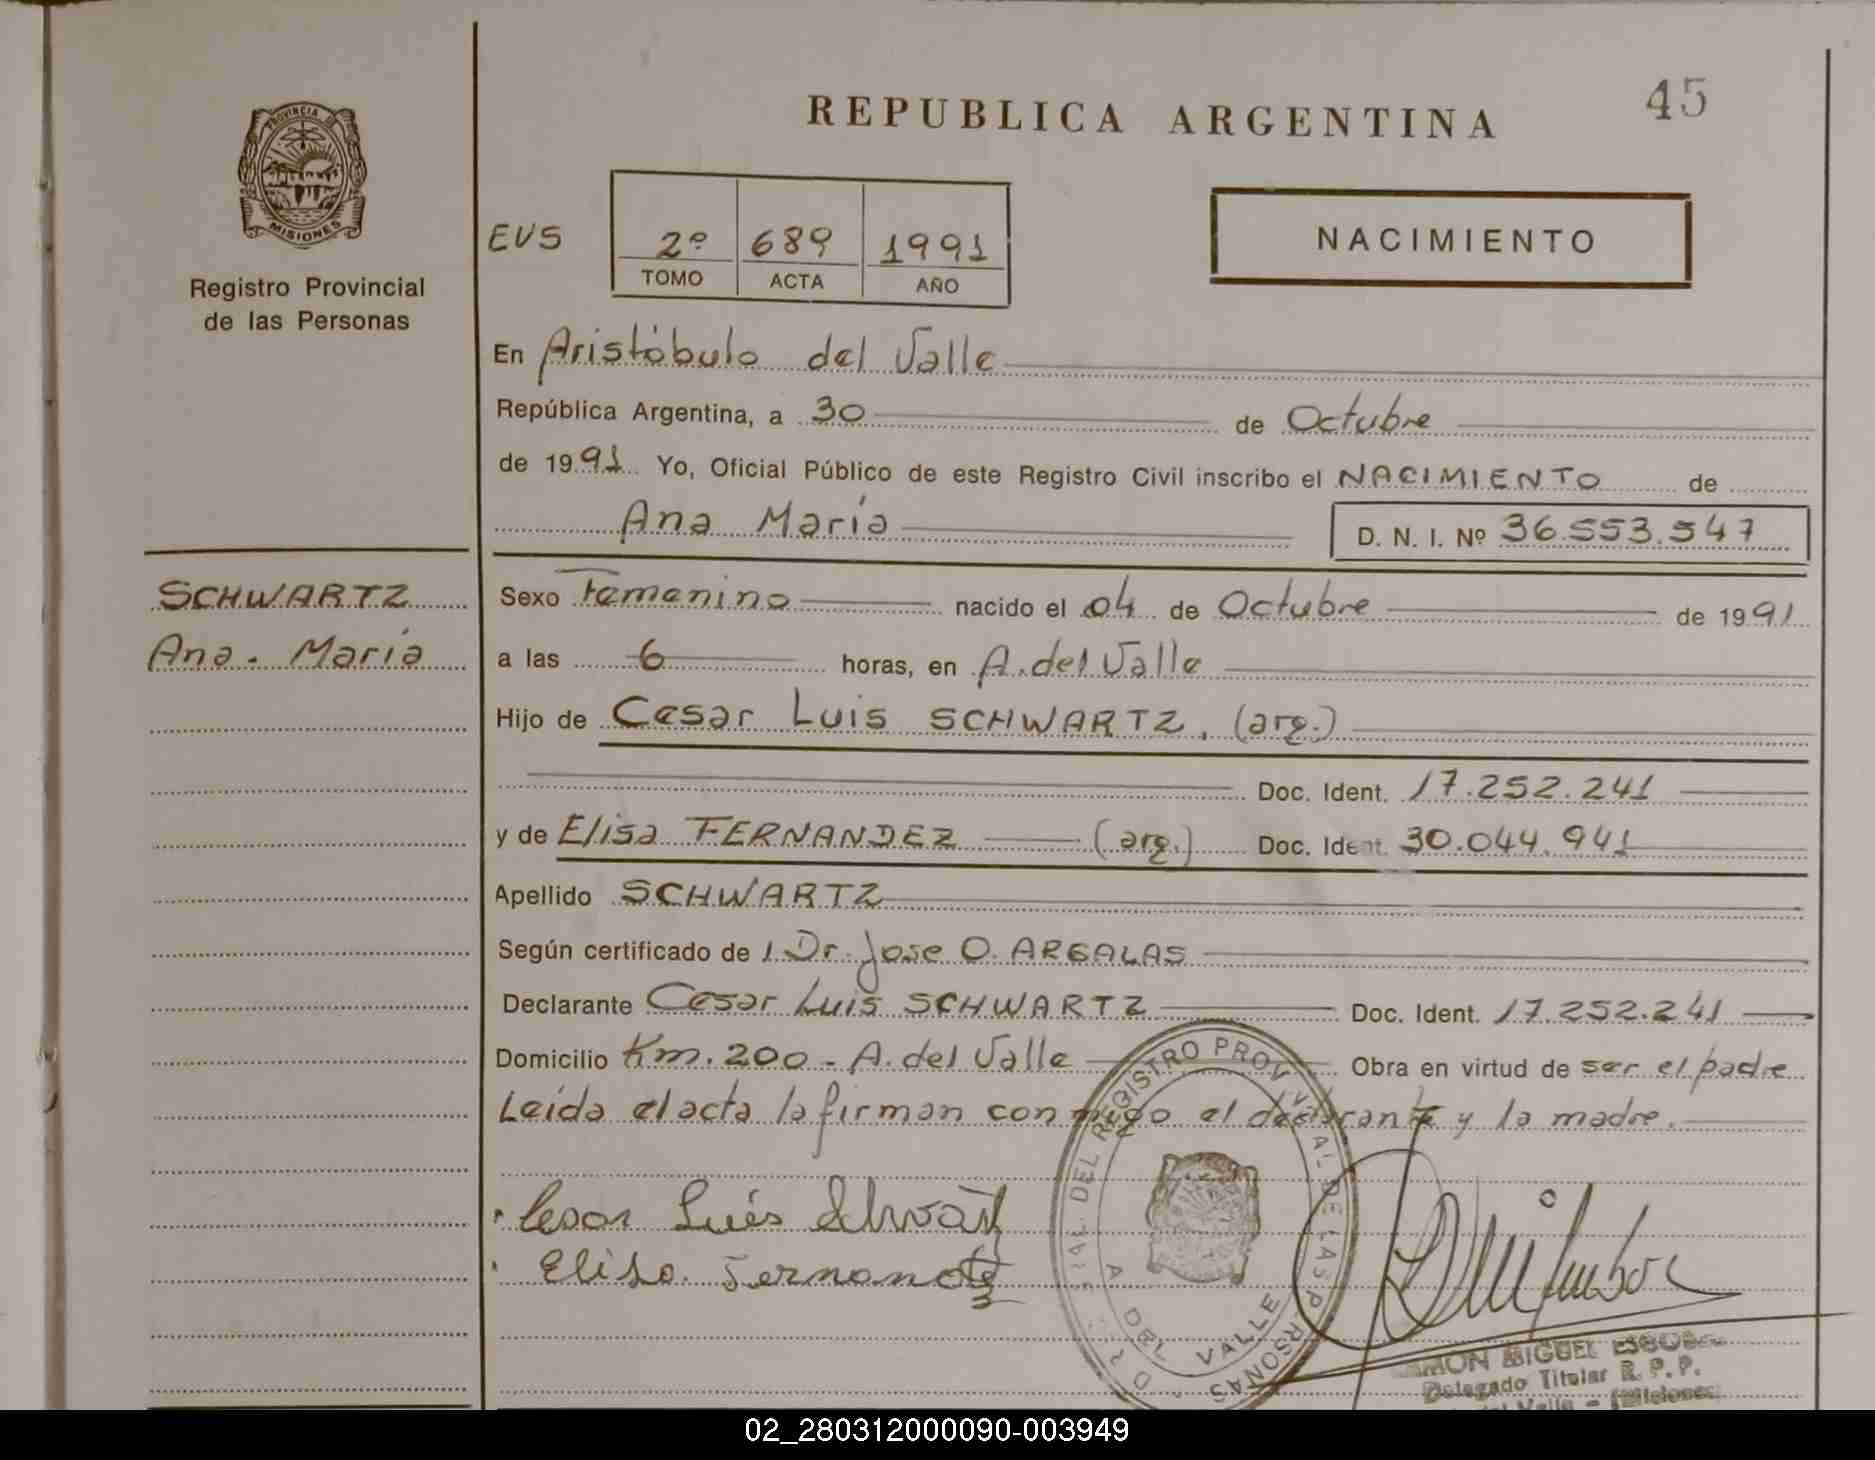 REPUBLICA ARGENTINA
45
PROVINCIA DE
MISIONES
Registro Provincial
de las Personas
EVS
2º 689 1991
TOMO ACTA AÑO
NACIMIENTO
En Aristóbulo del Valle
República Argentina, a 30 de Octubre
de 1991 Yo, Oficial Público de este Registro Civil inscribo el NACIMIENTO de
Ana María
D. N. I. Nº 36.553.547
SCHWARTZ
Ana. María
Sexo Femenino nacido el 04 de Octubre de 1991
a las 6 horas, en A. del Valle
Hijo de Cesar Luis SCHWARTZ. (arg.)
Doc. Ident. 17.252.241
y de Elisa FERNANDEZ (arg.) Doc. Ident. 30.044.941
Apellido SCHWARTZ
Según certificado de 1 Dr. Jose O. ARGALAS
Declarante Cesar Luis SCHWARTZ Doc. Ident. 17.252.241
Domicilio Km. 200 - A. del Valle Obra en virtud de ser el padre
Leída el acta la firman conmigo el declarante y la madre.
Cesar Luis
Elisa
DEL REGISTRO PROVINCIAL DE LAS PERSONAS
A. DEL VALLE
MIGUEL
Delegado Titular R. P. P.
del Valle - Misiones
02_280312000090-003949